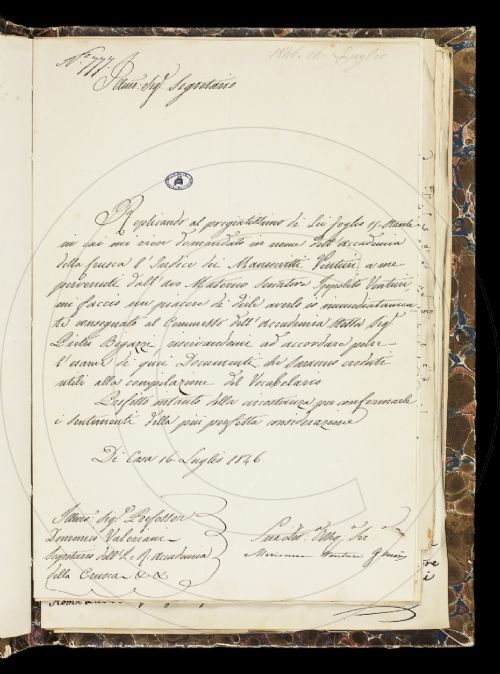 N.º 777.
1846. 16. Luglio
Illmo: Sig.e Segretario
Replicando al pregiatissimo di Lei foglio 11. Stante
in cui mi erea domandato in nome dell'accademia
della Crusca l'Indice dei Manoscritti Venturi a me
pervenuti dall'avo Materno Senatore Ippolito Venturi,
mi faccio un piacere di dirle averlo io immediatamen-
te consegnato al Commesso dell'Accademia stessa Sig.e
Pietro Bigazzi riserbandomi ad accordare pure
l'esame di quei Documenti che saranno creduti
utili alla compilazione del Vocabolario
Profitto intanto della circostanza per confermarle
i sentimenti della più perfetta considerazione
Di Casa 16. Luglio 1846.
Illmo: Sig.e Professore
Domenico Valeriani
Segretario dell'I. e R. Accademia
della Crusca
Obblig. Ser.
Venturi
Roma